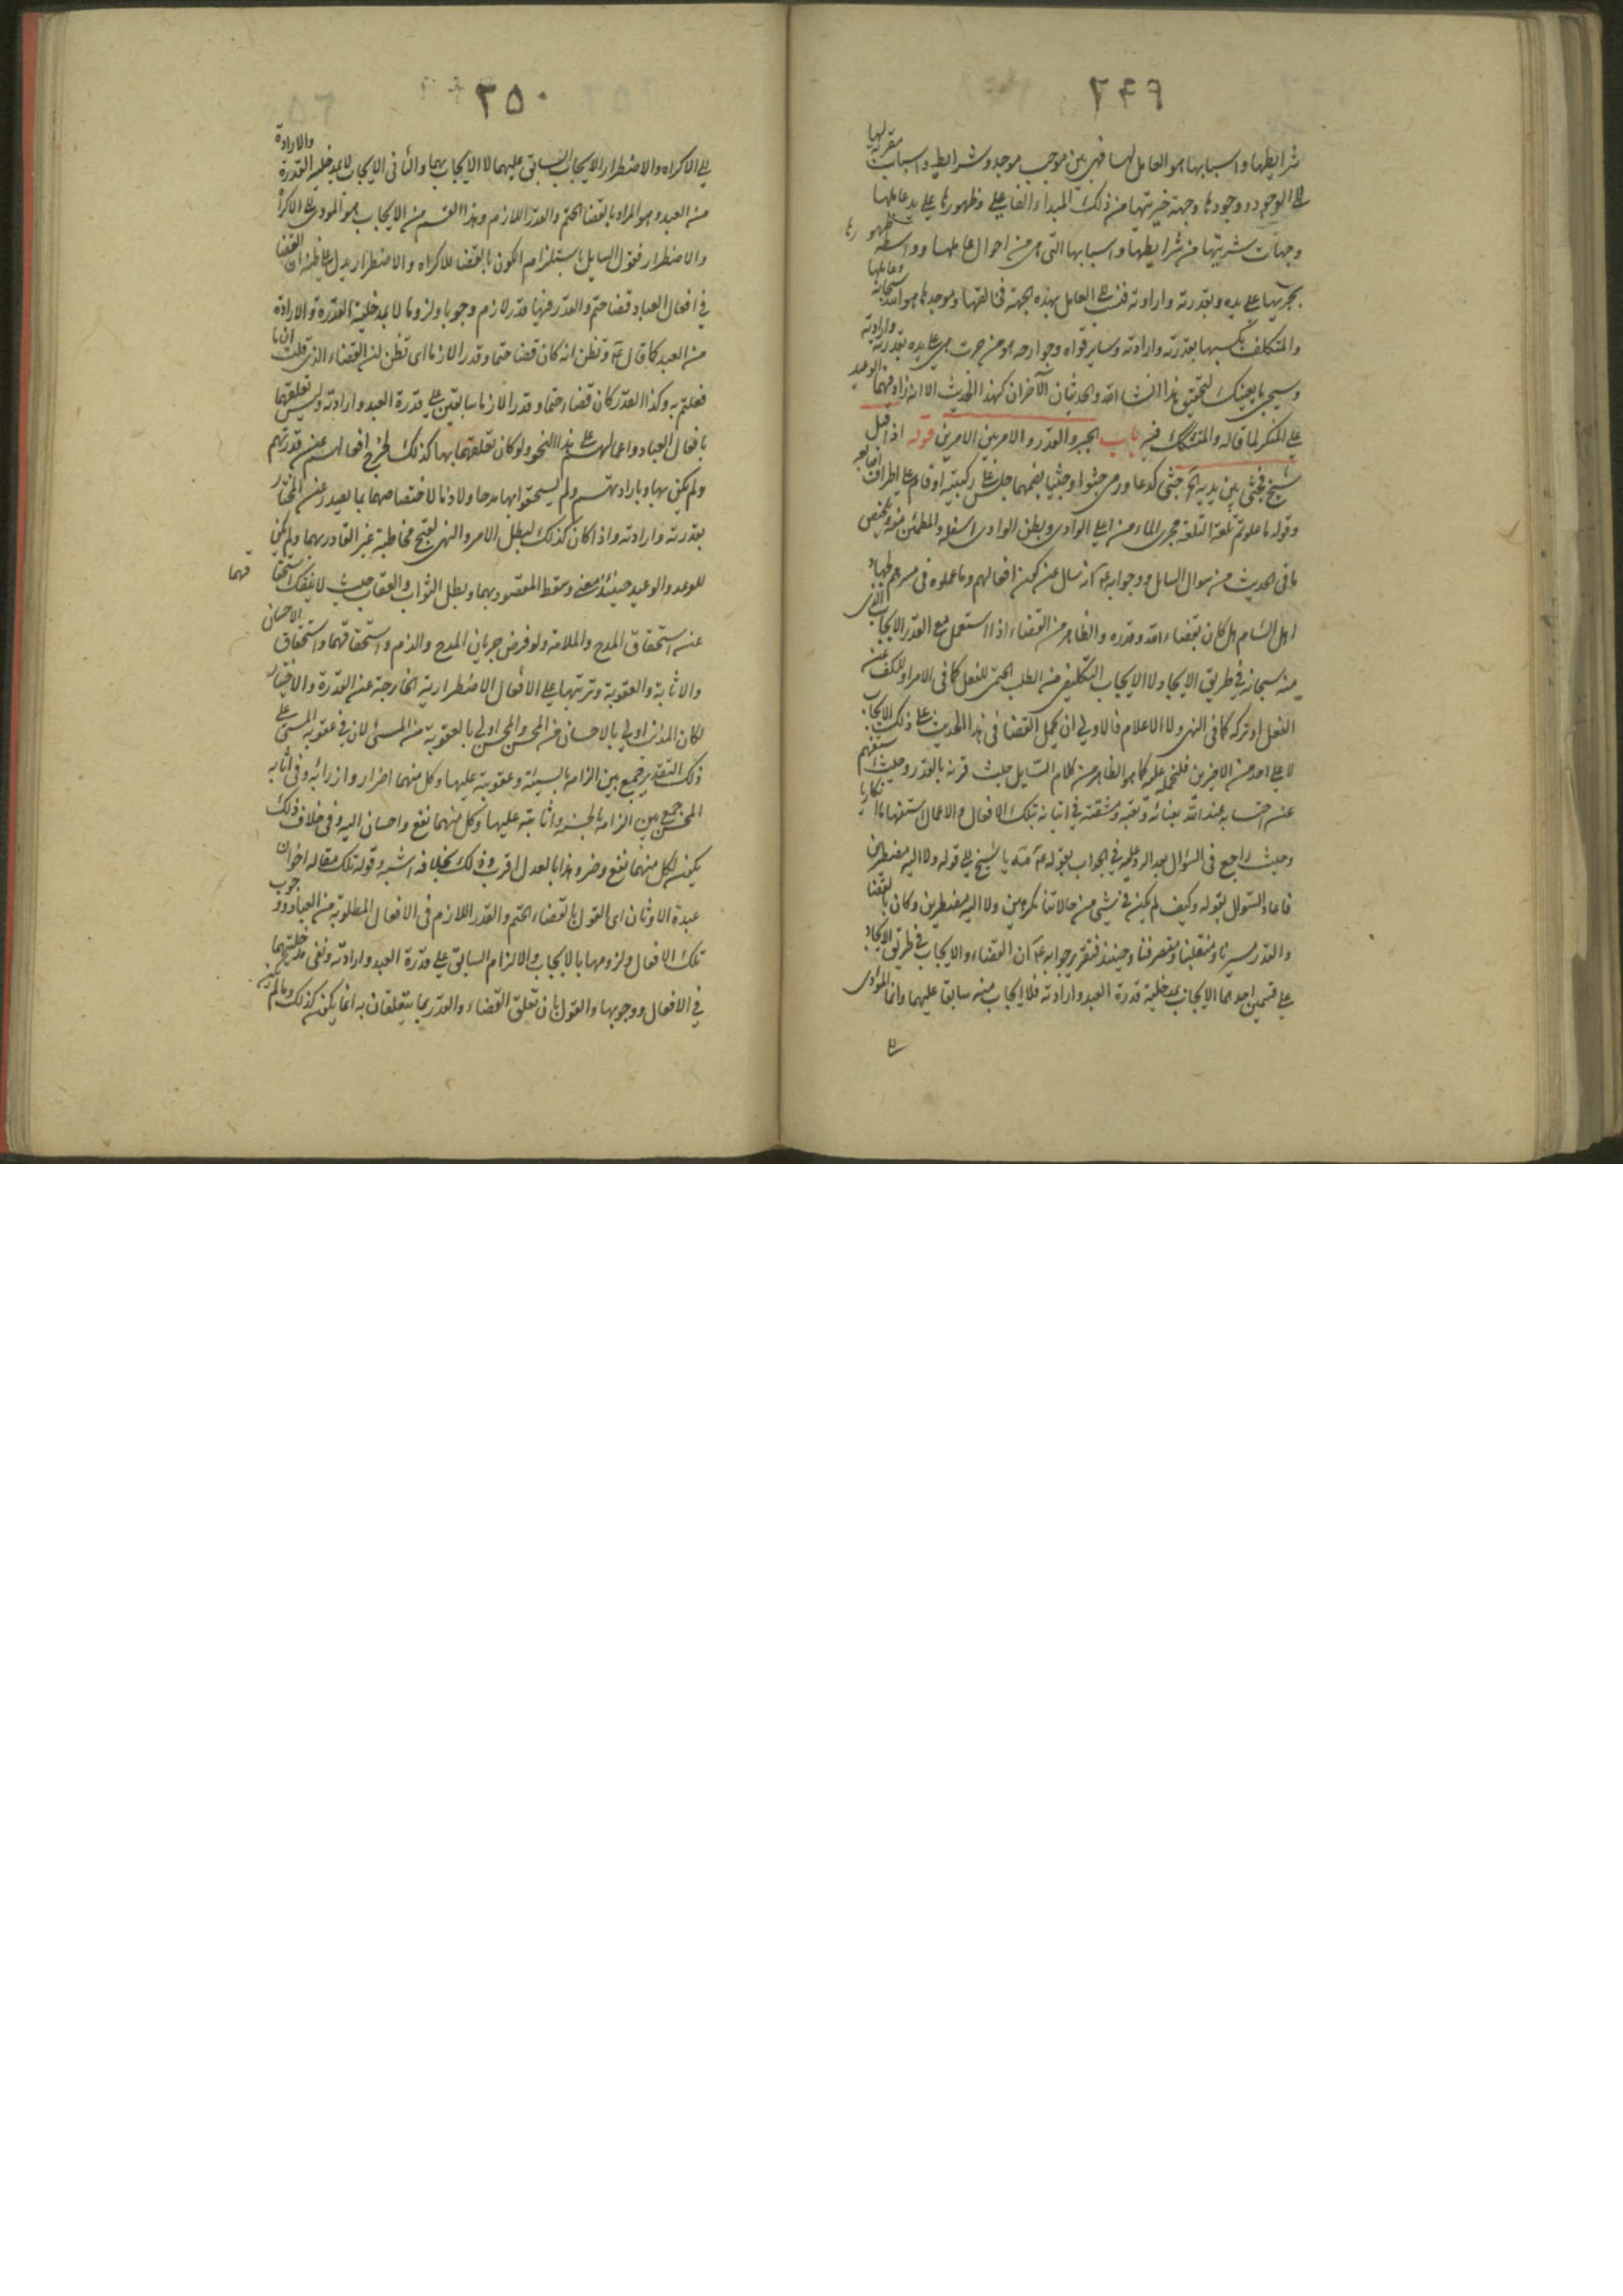 ٢٤٩
شرايطها واسبابها هو العامل لها فهى بين موجب موجد وشرايط واسباب مقربة لها
الى الوجود ووجودها وجهة خيريتها من ذلك المبداء الفاعلى وظهورها على يد عاملها
وجهات شريتها من شرايطها واسبابها التى هى من احوال عاملها وواسطة ظهورها
بجريها على يده وبقدرته وارادته فنسب الى العامل بهذه الجهة فخالقها وموجدها هو الله سبحانه وعاملها
والمتكلف بكسبها بقدرته وارادته وساير قواه وجوارحه هو من جرت هى على يده بقدرته وارادته
وسيجى ما يعينك لتحقيق هذا انشا الله والحديثان الآخران كهذا الحديث الا انه زاد فيهما الوعيد
على المنكر لما قاله والمتشكك فيه باب الجبر والقدر والامر بين الامرين قوله اذ اقبل
شيخ فجثى بين يديه آه جثى كدعا ورمى جثوا وجثيا بضمهما جلس على ركبتيه او قام على اطراف اصابعه
وقوله ما علوتم تلعة التلعة مجرى الماء من اعلى الوادى وبطن الوادى اسفله والمطمئن منه وتلخيص
ما فى الحديث من سوال السايل وجوابه عليه انه سال عن كون افعالهم وما عملوه فى مسيرهم لجهاد
اهل الشام هل كان بقضاء الله وقدره والظاهر من القضاء اذا استعمل مع القدر الايجاب الذى
منه سبحانه فى طريق الايجاد لا الايجاب التكليفى من الطلب الحتمى للفعل كما فى الامر او للكف عن
الفعل او تركه كما فى النهى ولا الاعلام فالاولى ان يحمل القضا فى هذا الحديث على ذلك الايجاب
لا على احد من الاخيرين فلنحمله عليه كما هو الظاهر من كلام السايل حيث قرنه بالقدر وحيث استفهم
عن احتسابه عند الله بعنائه وتعبه ومشقته فى اتيانه بتلك الافعال والاعمال استفهاما انكاريا
وحيث راجع فى السؤال بعد الرد عليه فى الجواب بقوله عليه مه يا شيخ الى قوله ولا اليه مضطرين
فاعاد السؤال بقوله وكيف لم يكن فى شئ من حالاتنا مكرهين ولا اليه مضطرين وكان بالقضا
والقدر مسيرنا ومنقلبنا ومنصرفنا وحينئذ فتقرير جوابه عليه ان القضاء والايجاب فى طريق الايجاد
على قسمين احدهما الايجاب بمدخلية قدرة العبد وارادته فلا ايجاب منه سابقا عليهما وانما المؤدى
٢٥٠
الى الاكراه والاضطرار الايجاب السابق عليهما لا الايجاب بهما والثانى الايجاب لا بمدخلية القدرة والارادة
من العبد وهو المراد بالقضا الحتم والقدر اللازم وهذا القسم من الايجاب هو المودى الى الاكراه
والاضطرار فقول السايل باستلزام الكون بالقضا للاكراه والاضطرار يدل على ظنه ان القضا
فى افعال العباد قضا حتم والقدر فيها قدر لازم وجوبا ولزوما لا بمدخلية القدرة والارادة
من العبد كما قال عليه وتظن انه كان قضا حتما وقدرا لازما اى تظن ان القضاء الذى قلت انا
فعلتم به وكذا القدر كان قضاء حتما وقدرا لازما سابقين على قدرة العبد وارادته وليس تعلقهما
بافعال العباد واعمالهم على هذا النحو ولو كان تعلقهما بها كذلك لخرج افعالهم عن قدرتهم
ولم يكن بها وبارادتهم ولم يستحقوا بها مدحا ولا ذما لاختصاصهما بما يصدر عن المختار
بقدرته وارادته واذا كان كذلك لبطل الامر والنهى لقبح مخاطبة غير القادر بهما ولم يكن
للوعد والوعيد حينئذ معنى وسقط المقصود بهما وبطل الثواب والعقاب حيث لا ينفك استحقاقهما
عن استحقاق المدح والملامة ولو فرض جريان المدح والذم واستحقاقهما واستحقاق الاحسان
والاثابة والعقوبة وترتبها على الافعال الاضطرارية الخارجة عن القدرة والاختيار
لكان المذنب اولى بالاحسان من المحسن والمحسن اولى بالعقوبة من المسئ لان فى عقوبة المسئ على
ذلك التقدير جمع بين الزامه بالسيئة وعقوبته عليها وكل منهما اضرار وازراء به وفى اثابة
المحسن جمع بين الزامه بالحسنة واثابته عليها وكل منهما نفع واحسان اليه وفى خلاف ذلك
يكون لكل منهما نفع وضر وهذا بالعدل اقرب وذلك بخلافه اشبه وقوله تلك مقالة اخوان
عبدة الاوثان اى القول بالقضاء الحتم والقدر اللازم فى الافعال المطلوبة من العباد ووجوب
تلك الافعال ولزومها بالايجاب والالزام السابق على قدرة العبد وارادته ونفى مدخليتهما
فى الافعال ووجوبها والقول بان تعلق القضاء والقدر بما يتعلقان به انما يكون كذلك وما لم يكن